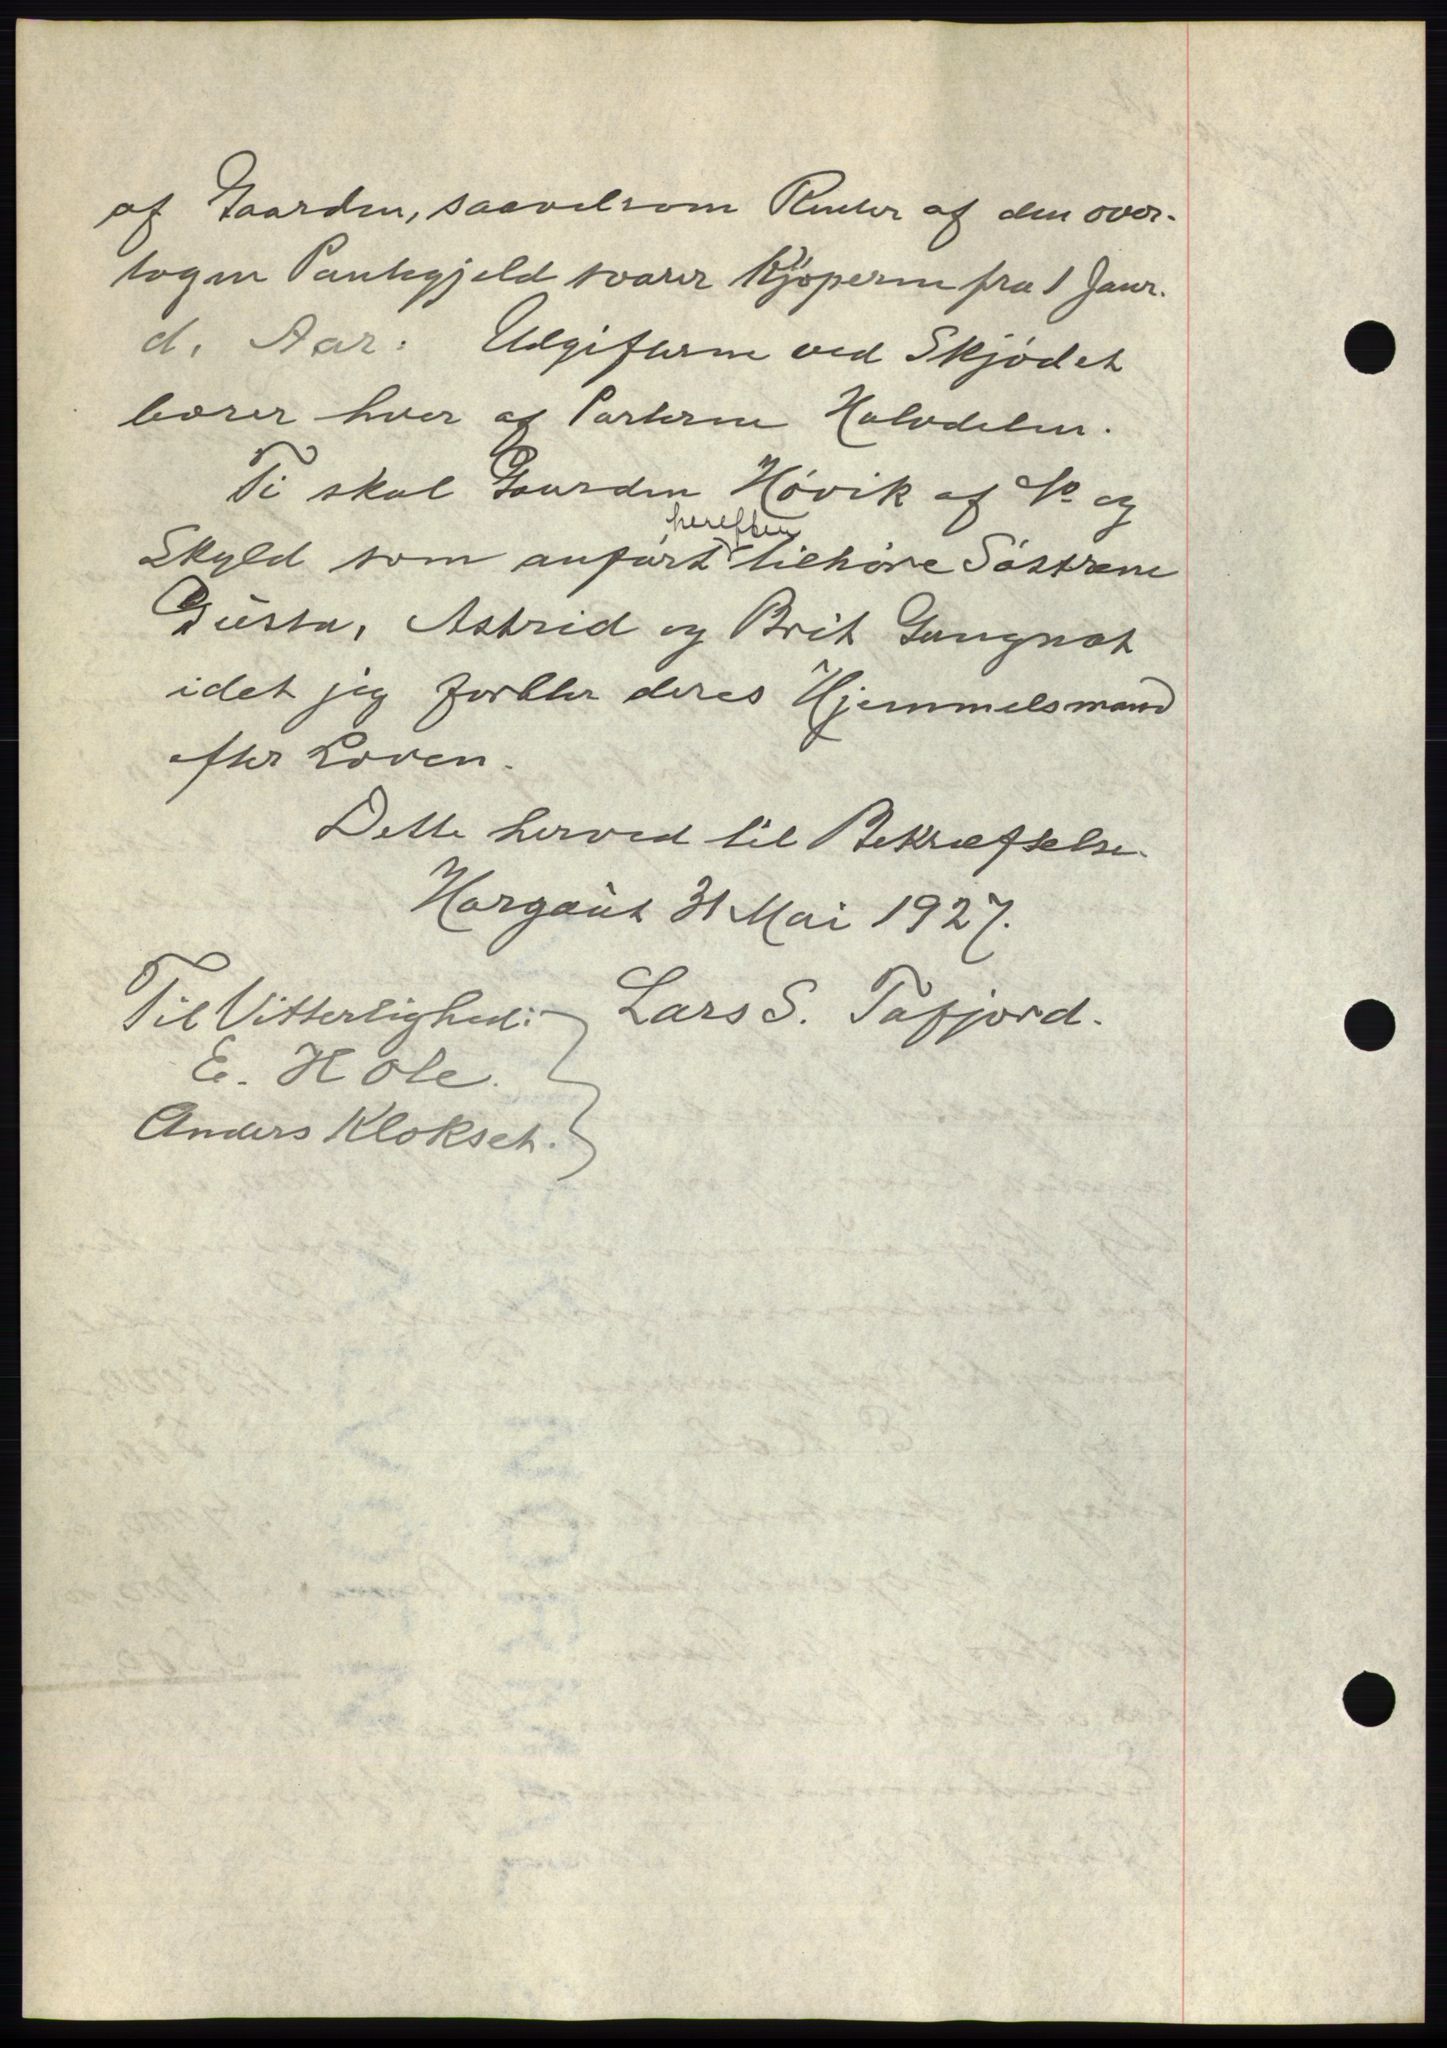 af Gaarden, saavelsom Renter af den over-
tagne Pantegjeld svarer Kjöperne fra 1 Janr.
d. Aar. Udgifterne ved Skjödet
bærer hver af Parterne Halvdelen.
Ti skal Gaarden Hövik af No og
herefter
Skyld som anfört tilhöre Söstrene
Gusta, Astrid og Brit Gangnat
idet jeg forbler deres Hjemmelsmand
efter Loven.
Dette herved til Bekræftelse.
Horgaut 31 Mai 1927.
Til Vitterlighed: Lars S. Tafjord.
E. Hole.
Anders Klokset.